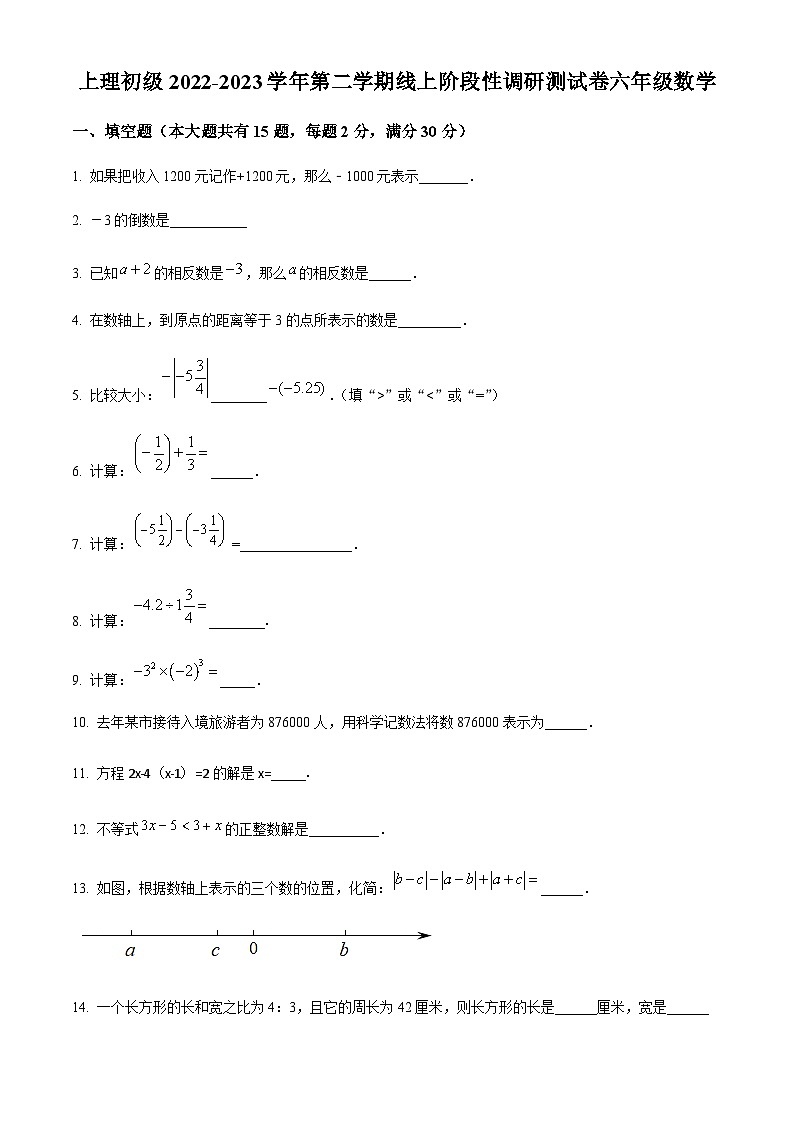 上理初级2022-2023学年第二学期线上阶段性调研测试卷六年级数学
一、填空题（本大题共有15题，每题2分，满分30分）
1. 如果把收入1200元记作+1200元，那么﹣1000元表示_______.
2. －3的倒数是___________
3. 已知a+2的相反数是−3，那么a的相反数是______.
4. 在数轴上，到原点的距离等于3的点所表示的数是_________.
5. 比较大小：−|−5 3/4|________−(−5.25).（填“>”或“<”或“=”）
6. 计算：(−1/2)+1/3=______.
7. 计算：(−5 1/2)−(−3 1/4) =________________.
8. 计算：−4.2÷1 3/4=________.
9. 计算：−3²×(−2)³=_____.
10. 去年某市接待入境旅游者为876000人，用科学记数法将数876000表示为______.
11. 方程2x-4（x-1）=2的解是x=_____.
12. 不等式3x−5<3+x的正整数解是__________.
13. 如图，根据数轴上表示的三个数的位置，化简：|b−c|−|a−b|+|a+c|=______.
a c 0 b
14. 一个长方形的长和宽之比为4：3，且它的周长为42厘米，则长方形的长是______厘米，宽是______